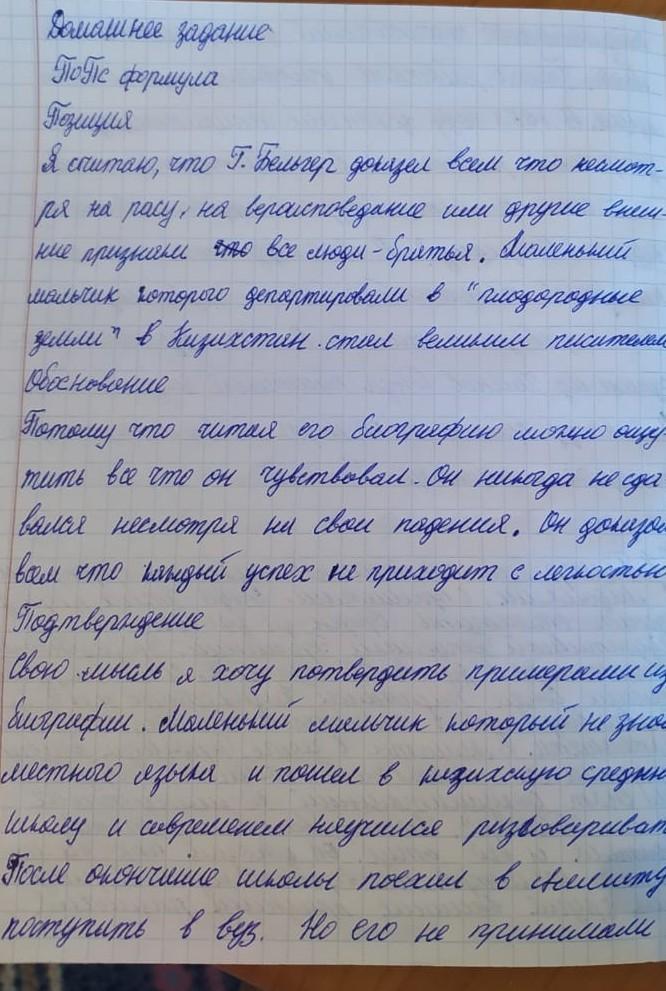 Домашнее задание
ПоПс формула
Позиция
Я считаю, что Г. Бельгер доказел всем что несмот-
ря на расу, на вероисповедание или другие внеш-
ние признаки что все люди-братья. Маленький
мальчик которого департировали в "плодородные
земли" в Казахстан. стал великим писателем
Обоснование
Потому что читая его биографию можно ощу
тить все что он чувствовал. Он никогда не сда
вался несмотря на свои падения. Он доказал
вам что каждый успех не приходит с легкостью
Подтверждение
Свою мысль я хочу потвердить примерами из
биографии. Маленький мальчик который не знал
местного языка и пошел в казахскую средню
школу и современем научился разговариват
После окончание школы поехал в Алмату
поступить в вуз. Но его не принимали